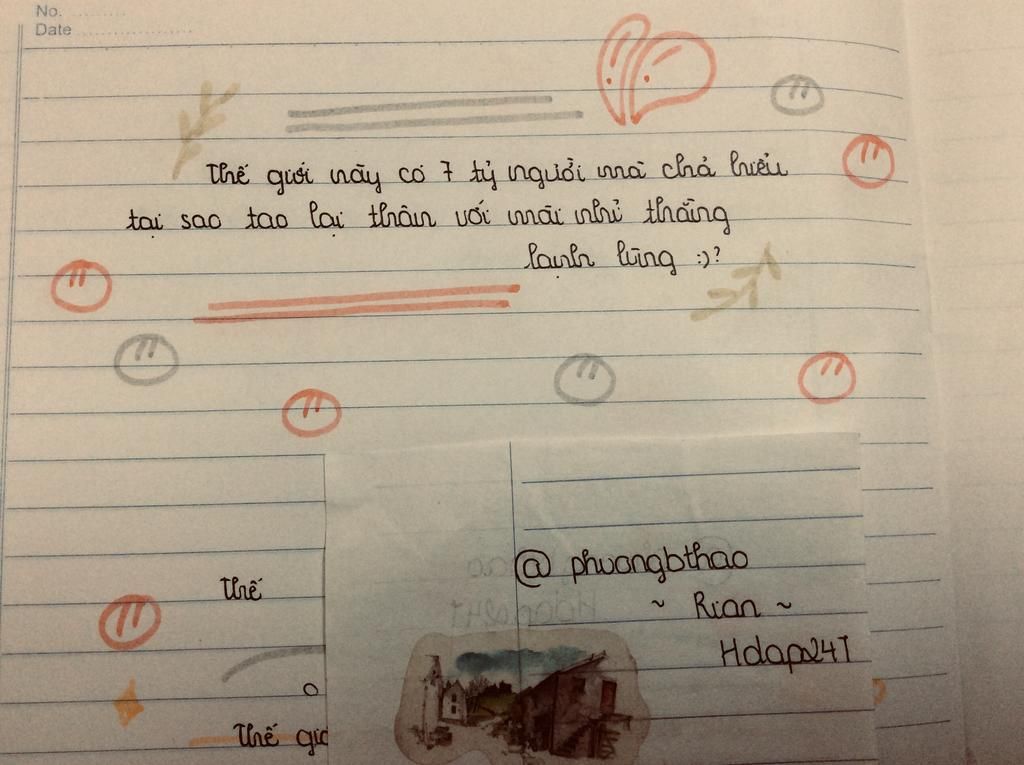 No.
Date
Thế giới này có 7 tỷ người mà chả hiểu
tại sao tao lại thân với mài như thằng
lạnh lùng :)?
@ phuongbthao
~ Rian ~
Hdap247
Thế
Thế giớ